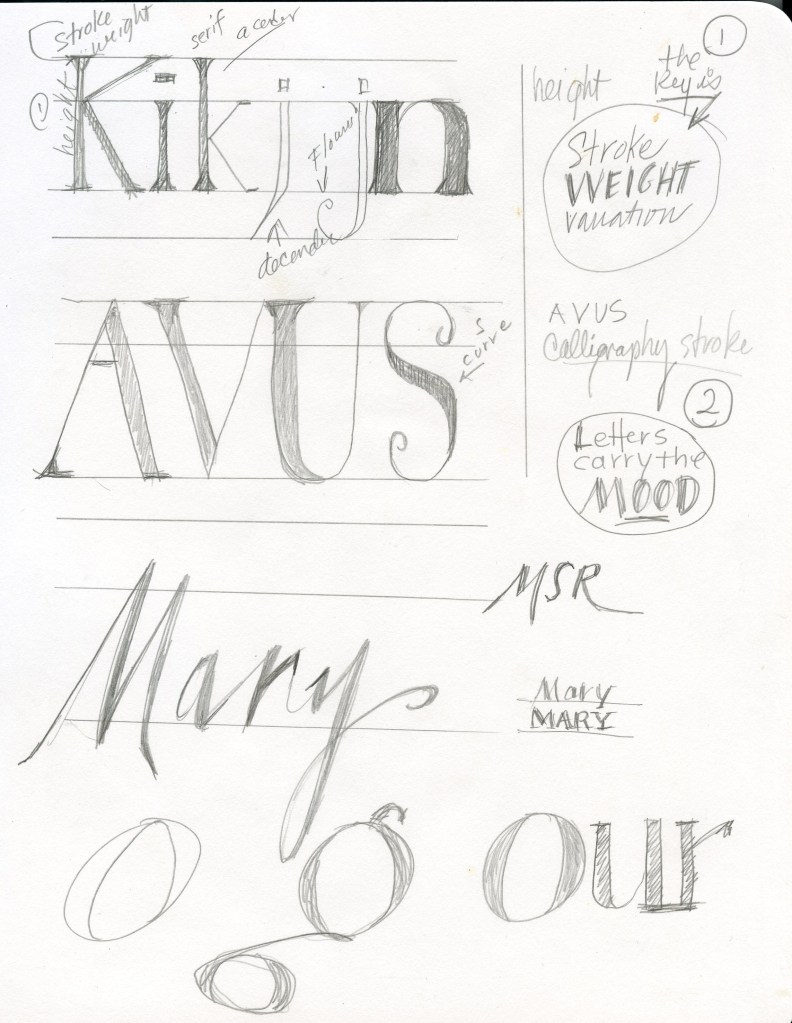 stroke
weight
serif
acender
height
1
Kikjjn
Flouri
decender
AVUS
S
curve
Mary
O g our
1
height
the
Key is
Stroke
WEIGHT
variation
AVUS
Calligraphy stroke
2
Letters
carry the
MOOD
MSR
Mary
MARY